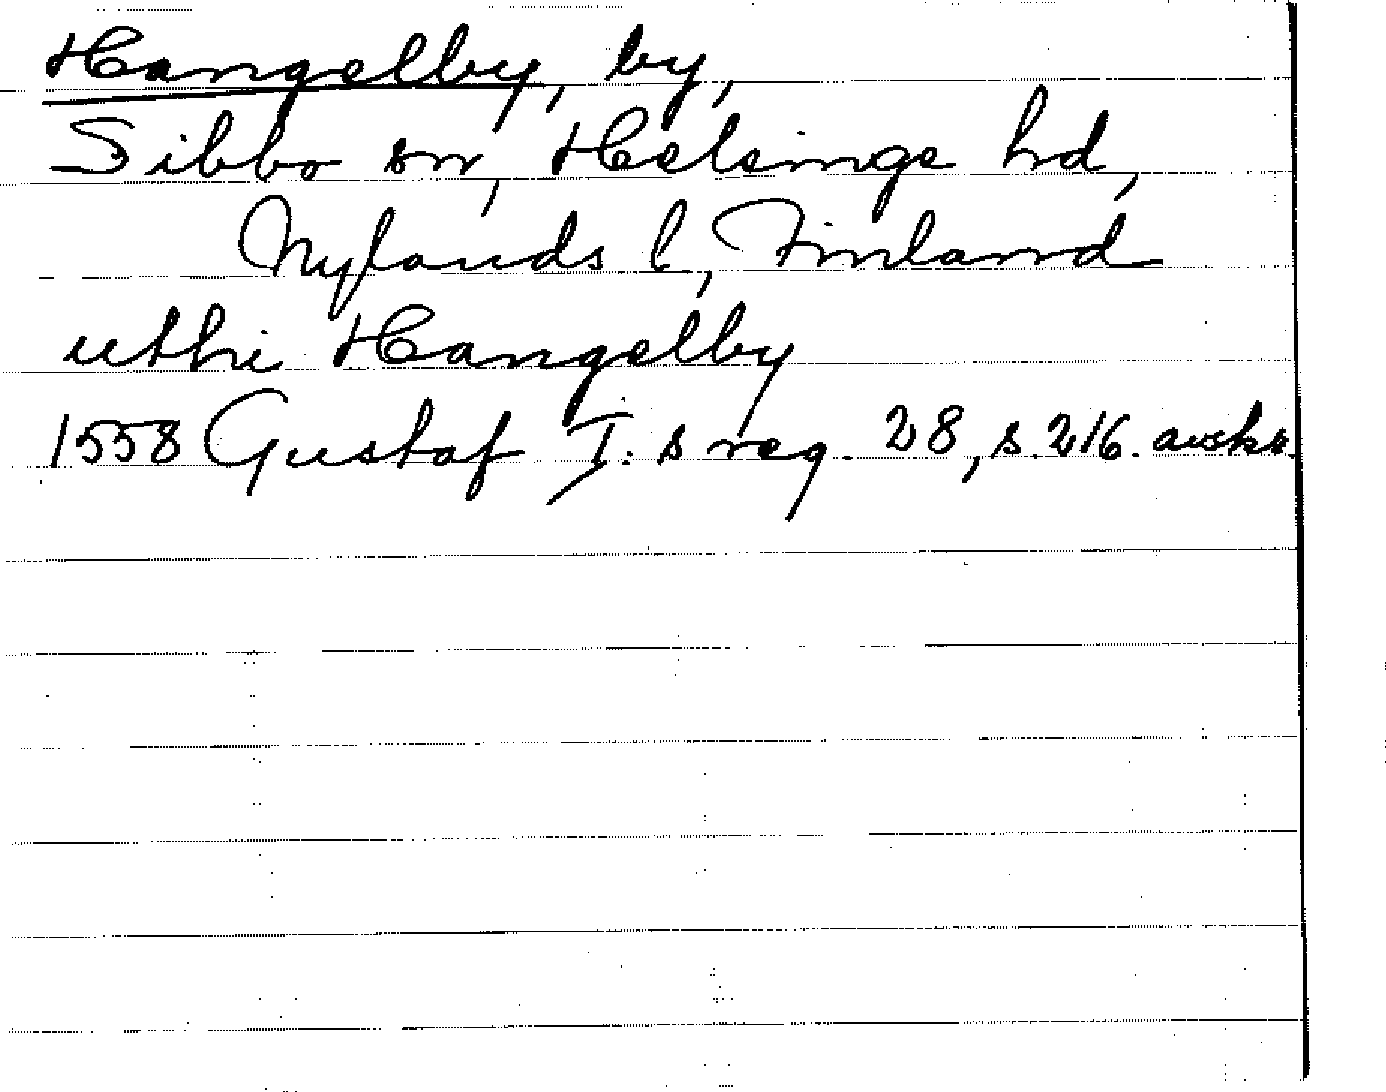 Hangelby, by,
Sibbo sn, Helsinge hd,
Nylands l, Finland
uthi Hangelby
1558 Gustaf I:s reg. 28, s. 216. avskr.